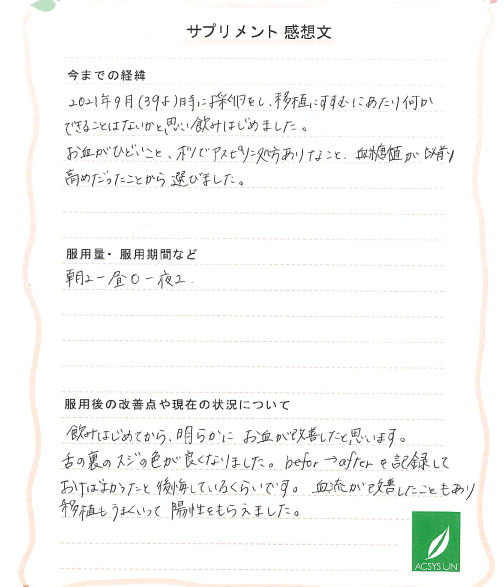 サプリメント 感想文
今までの経緯
2021年9月(39才)時に採卵をし、移植にすすむにあたり何か
できることはないかと思い飲みはじめました。
お血がひどいこと、ポリでアスピリン処方ありなこと、血糖値が以前
高めだったことから選びました。
服用量・服用期間など
朝2－昼0－夜2.
服用後の改善点や現在の状況について
飲みはじめてから、明らかに お血が改善したと思います。
舌の裏のスジの色が良くなりました。befor→afterを記録して
おけばよかったと後悔しているくらいです。血流が改善したこともあり
移植もうまくいって陽性をもらえました。
ACSYS LIN